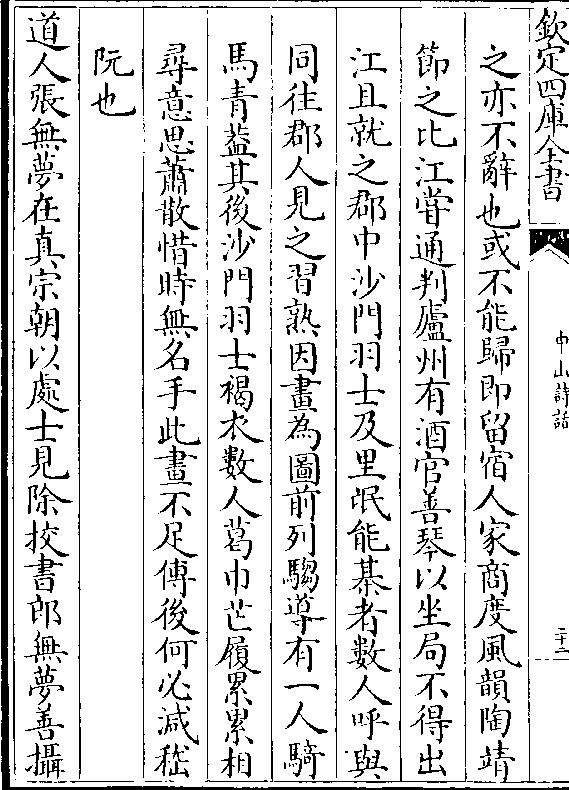 欽定四庫全書
中山詩話
二十二
之亦不辭也或不能歸即留宿人家商度風韻陶靖
節之比江嘗通判廬州有酒官善琴以坐局不得出
江且就之郡中沙門羽士及里氓能棊者數人呼與
同往郡人見之習熟因畫為圖前列騶導有一人騎
馬青蓋其後沙門羽士褐衣數人葛巾芒履累累相
尋意思蕭散惜時無名手此畫不足傳後何必減嵇
阮也
道人張無夢在真宗朝以處士見除挍書郎無夢善攝